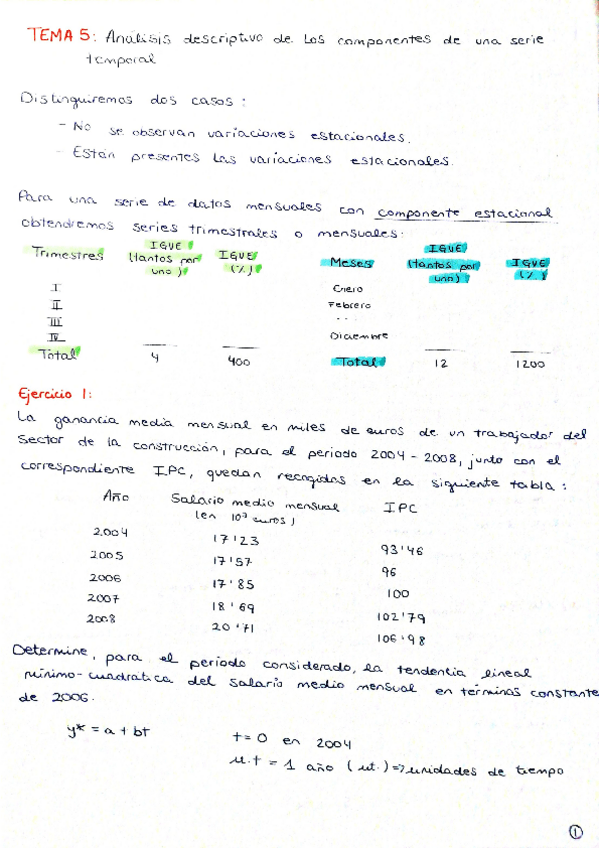 TEMA 5: Análisis descriptivo de los componentes de una serie
temporal
Distinguiremos dos casos:
- No se observan variaciones estacionales.
- Están presentes las variaciones estacionales.
Para una serie de datos mensuales con componente estacional
obtendremos series trimestrales o mensuales:
Trimestres IGVE (tantos por uno) IGVE (%) Meses IGVE (tantos por uno) IGVE (%)
I Enero
II Febrero
III ...
IV Diciembre
Total 4 400 Total 12 1200
Ejercicio 1:
La ganancia media mensual en miles de euros de un trabajador del
sector de la construcción, para el periodo 2004-2008, junto con el
correspondiente IPC, quedan recogidos en la siguiente tabla:
Año Salario medio mensual (en 10³ euros) IPC
2004 17'23 93'46
2005 17'57 96
2006 17'85 100
2007 18'69 102'79
2008 20'71 106'98
Determine, para el periodo considerado, la tendencia lineal
mínimo-cuadrática del salario medio mensual en términos constante
de 2006.
y* = a + bt t = 0 en 2004
u.t = 1 año (ut.) => unidades de tiempo
1